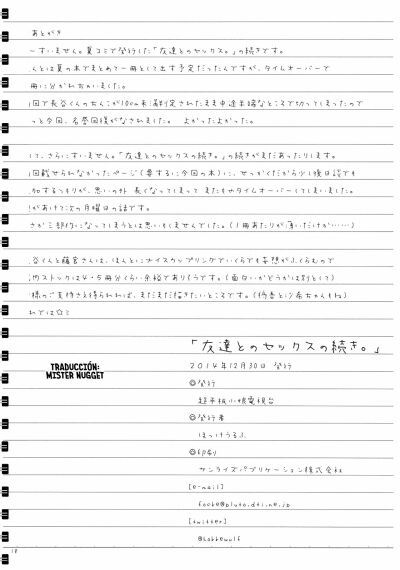 あとがき
〜すいません。夏コミで発行した「友達とのセックス。」の続きです。
んとは夏の本でまとめて一冊として出す予定だったんですが、タイムオーバーで
冊に分かれちゃいました。
回で長谷くんのちんこが10cm未満判定されたまま中途半端なところで切ってしまったので
っと今回、名誉回復がなされました。 よかったよかった。
して、さらにすいません。「友達とのセックスの続き。」の続きがまだあったりします。
回載せられなかったページ(要するに今回の本)に、せっかくだから少し後日談でも
加するつもりが、思いの外 長くなってしまって またもやタイムオーバーしてしまいました。
があけて次の月曜日の話です。
さか三部作になってしまうとは思いもしませんでした。(1冊あたりが薄いだけか……)
谷くんと藤宮さんは、ほんとにナイスカップリングでいくらでも妄想がふくらむので
内ストックは4・5冊分くらい余裕でありそうです。(面白いかどうかは別として)
様のご支持さえ得られれば、まだまだ描きたいところです。
れでは☆ミ
「友達とのセックスの続き。」
TRADUCCIÓN:
MISTER NUGGET
2014年12月30日 発行
◎発行
超平板小娘電視台
◎発行者
ほっけうるふ
◎印刷
サンライズパブリケーション株式会社
[e-mail]
foobe@pluto.dti.ne.jp
[twitter]
@hokkewulf
18